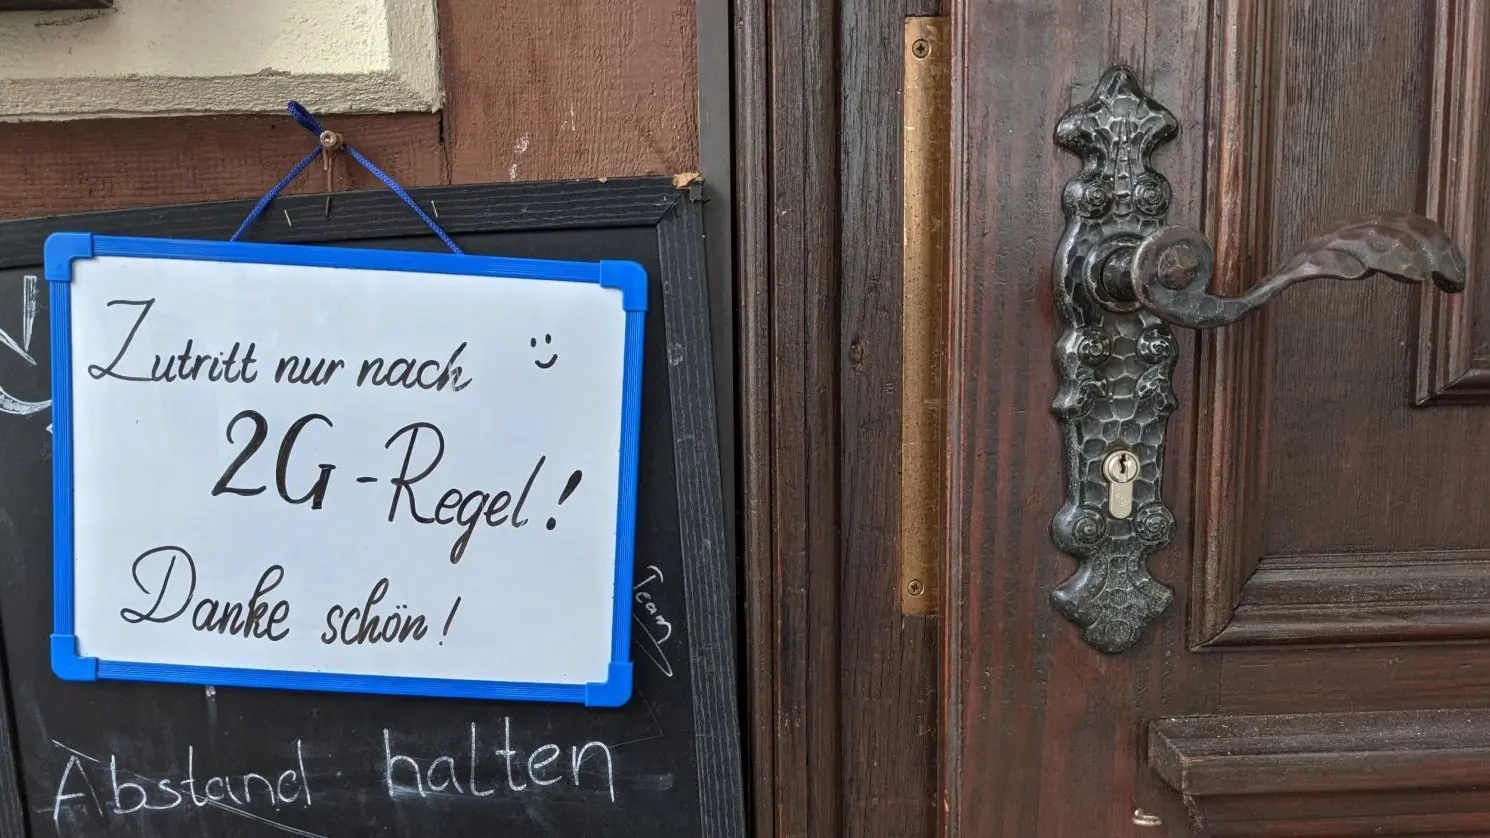 Zutritt nur nach
2G-Regel!
Danke schön!
Team
Abstand halten